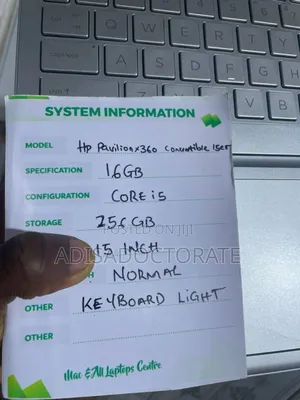 SYSTEM INFORMATION
MODEL Hp Pavilion x360 Convertible 15er
SPECIFICATION 16GB
CONFIGURATION CORE i5
STORAGE 256GB
POSTED ON JIJI
15 INCH
ADISADOCTORATE
NORMAL
OTHER KEYBOARD LIGHT
OTHER
Mac & All Laptops Centre